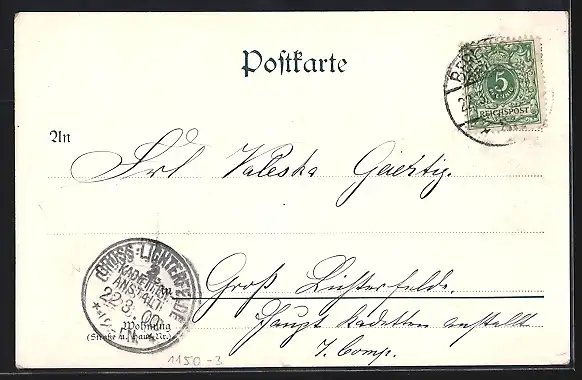 Postkarte
BERL
22.3
5
REICHSPOST
An
Frl Valeska Gaehtig.
GROSS-LICHTERFELDE
KADETTEN-
ANSTALT
22.3.00
N
in
Groß Lichterfelde.
Wohnung
(Straße u. Haus-Nr.)
Haupt Kadetten anstalt
7. Comp.
1150-3